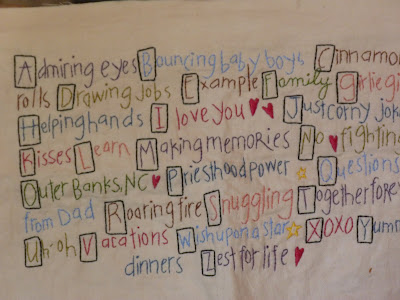 Admiring eyes Bouncing baby boys Cinnamon
rolls Drawing jobs Example Family Girlie gi
Helping hands I love you Just corny joke
Kisses Learn Making memories No fighting
Outer Banks, NC Priesthood power Questions
from Dad Roaring fire Snuggling Together forev
Uh-oh Vacations Wish upon a star XOXO Yumm
dinners Zest for life